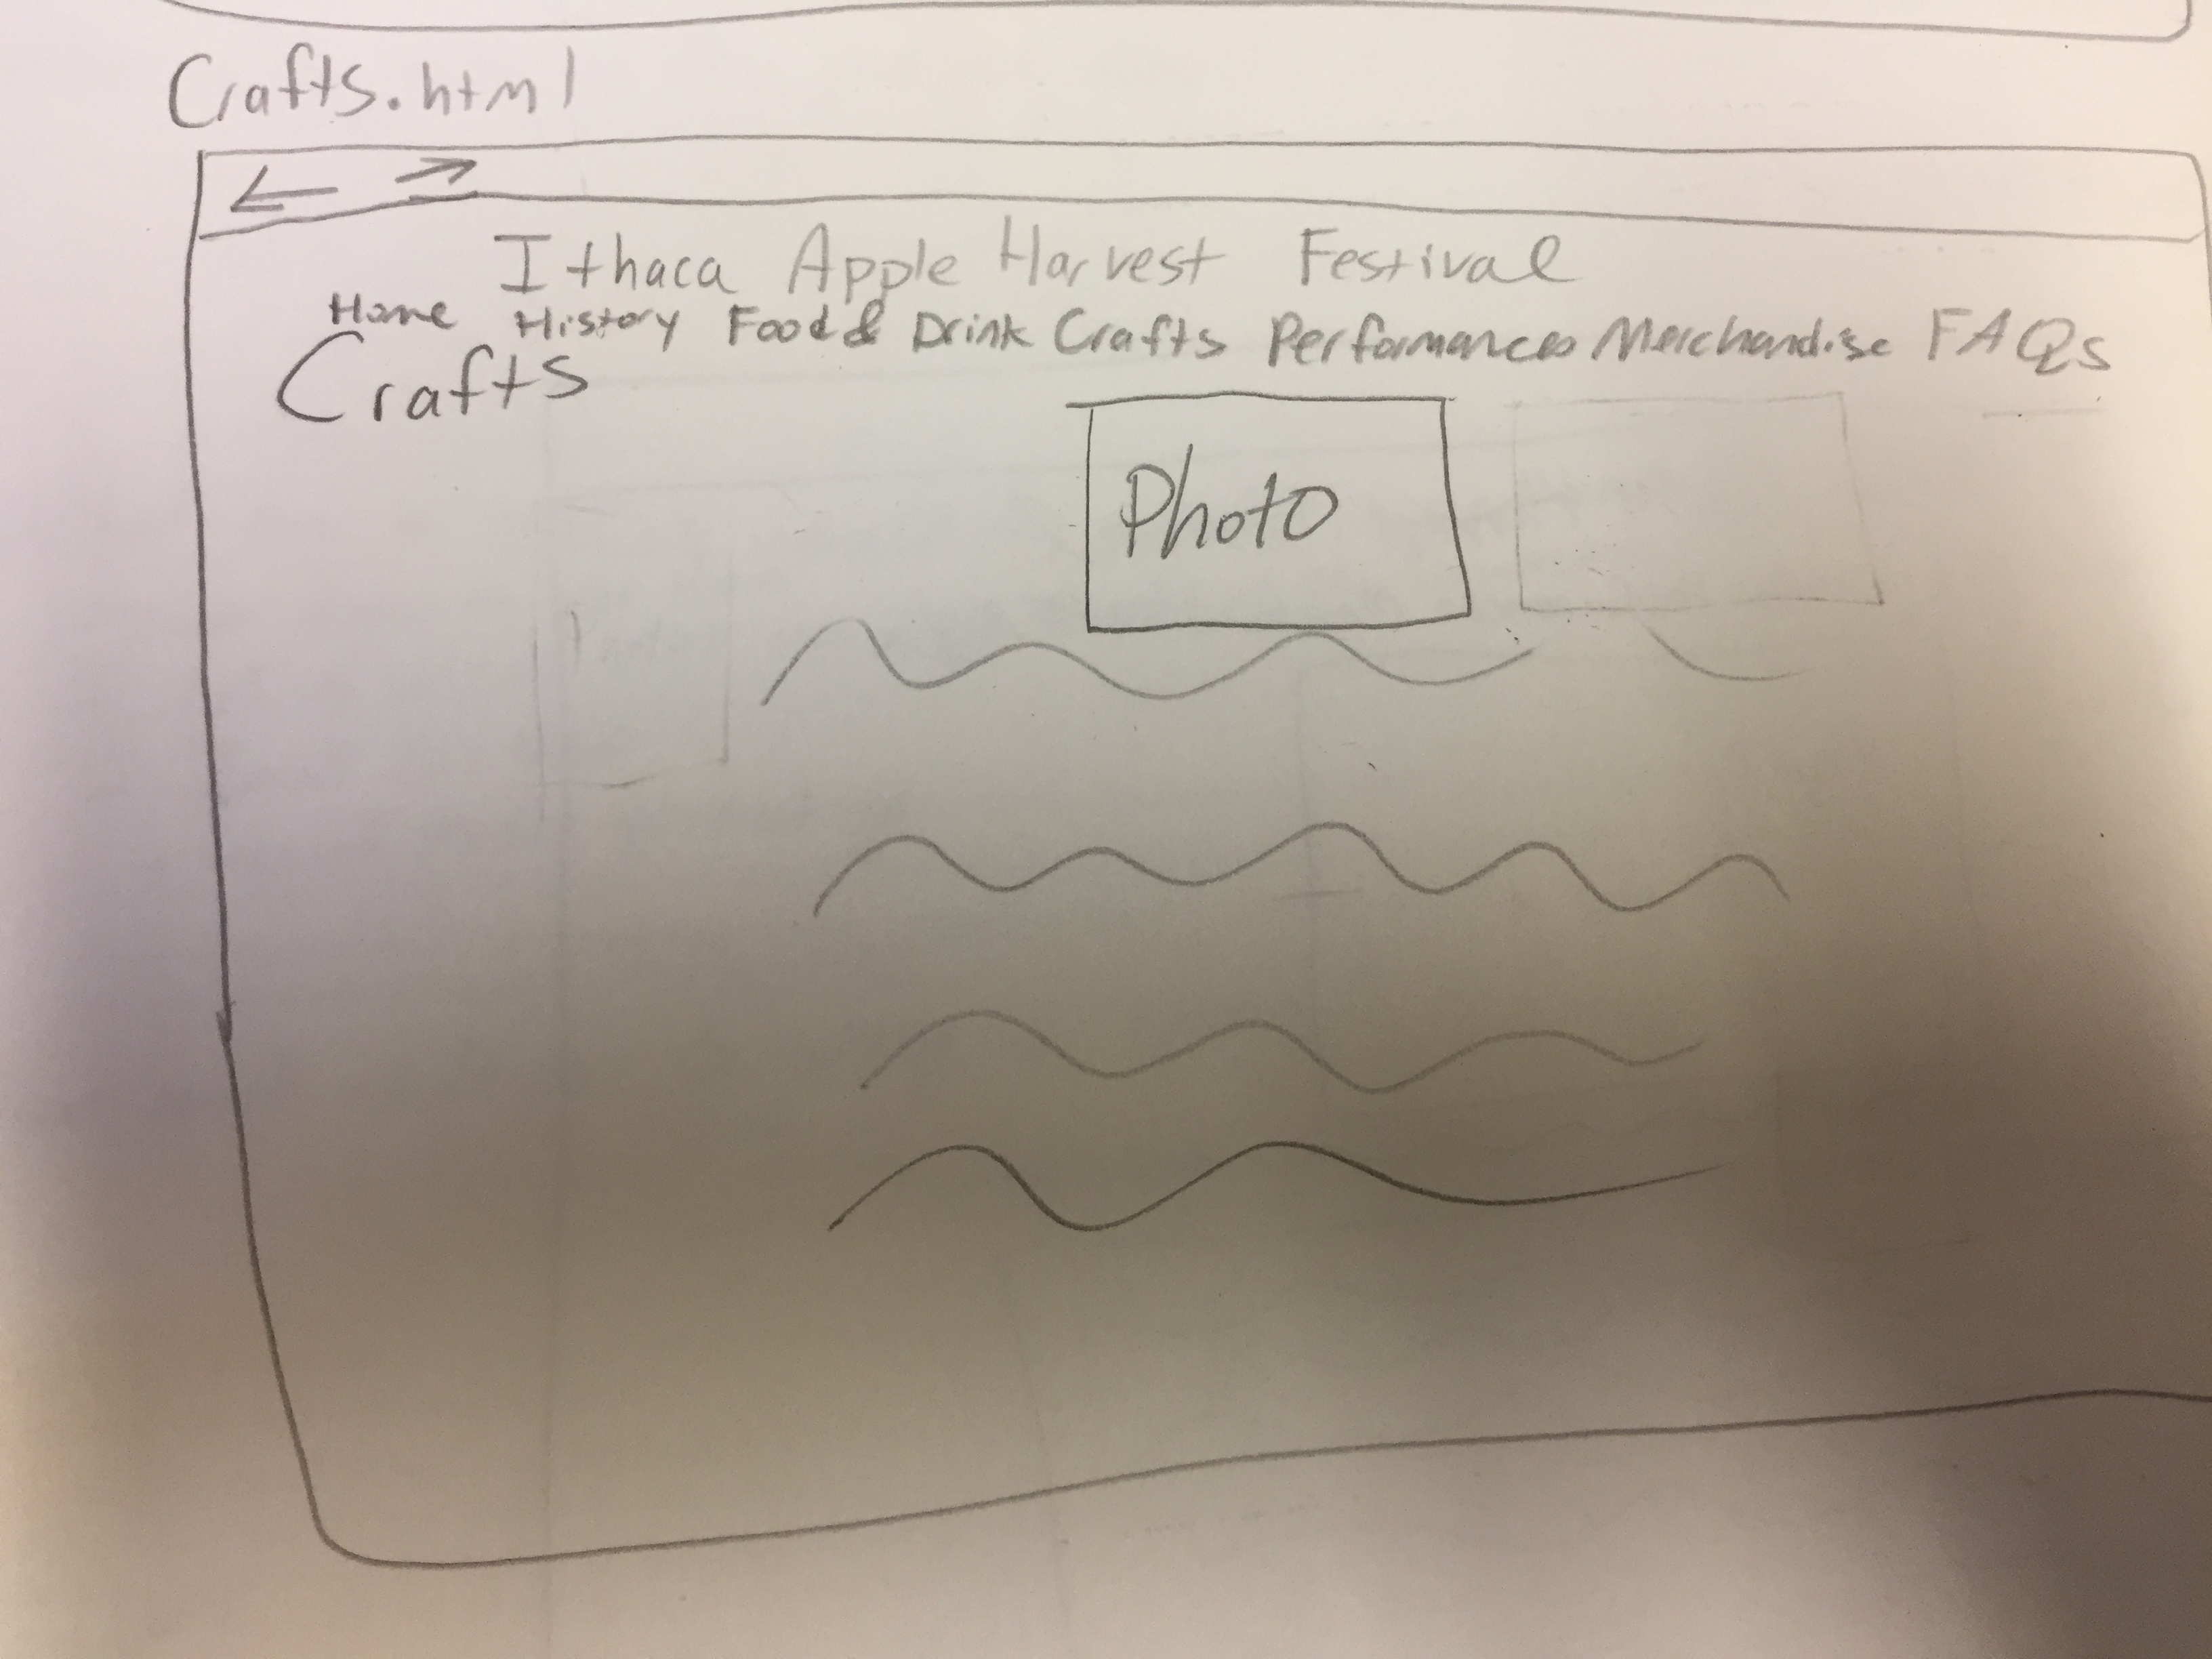 Crafts.html
Ithaca Apple Harvest Festival
Home History Food & Drink Crafts Performances Merchandise FAQs
Crafts
Photo